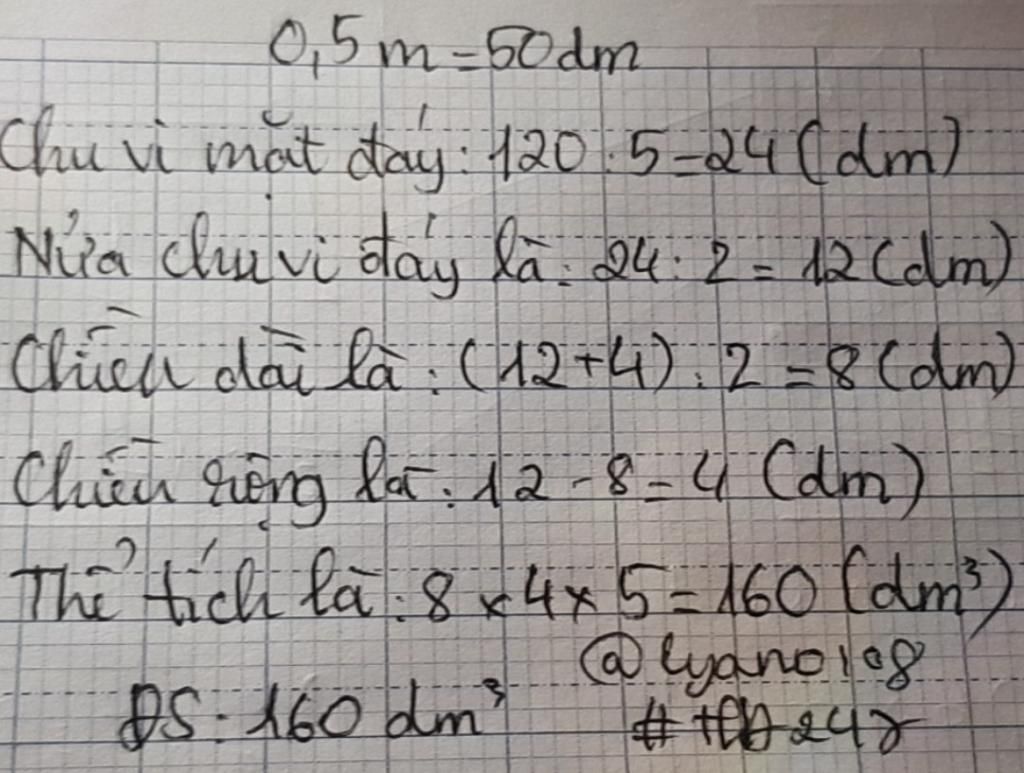 0,5m=50dm
Chu vi mặt đáy: 120:5=24(dm)
Nửa chu vi đáy là: 24:2=12(dm)
Chiều dài là: (12+4):2=8(dm)
Chiều rộng là: 12-8=4 (dm)
Thể tích là: 8×4×5=160(dm³)
@lyano108
ĐS: 160 dm³